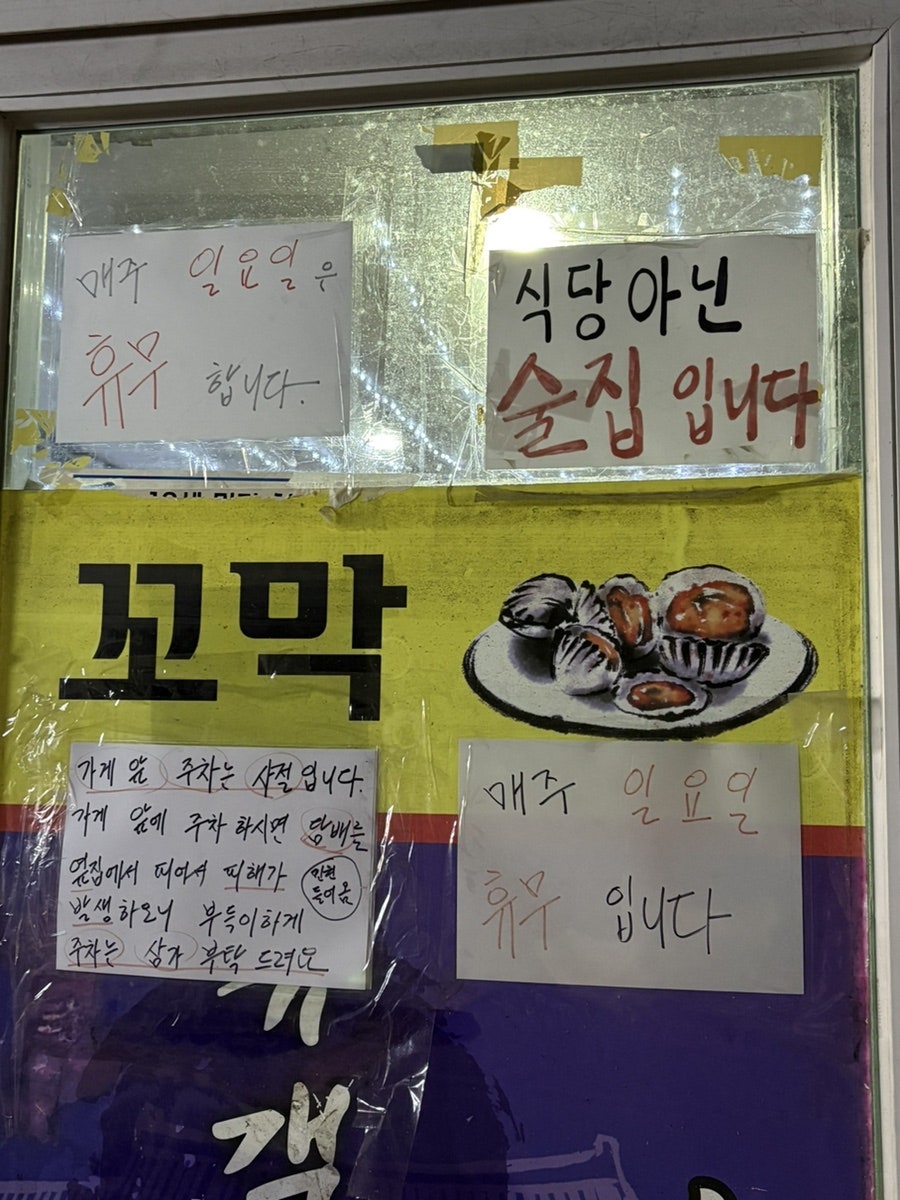 매주 일요일은
휴무 합니다.
식당아닌
술집입니다
꼬막
가게 앞 주차는 사절입니다.
가게 앞에 주차 하시면 담배를
옆집에서 피아서 피해가
민원
들어옴
발생하오니 부득이하게
주차는 삼가 부탁 드려요
매주 일요일
휴무 입니다
갬